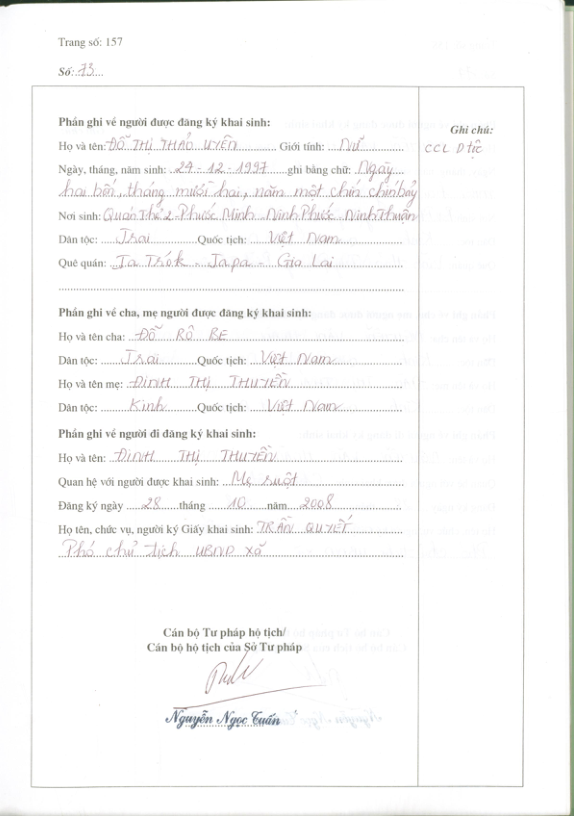 Trang số: 157
Số: 73
Phần ghi về người được đăng ký khai sinh:
Ghi chú:
Họ và tên: ĐỖ THỊ THẢO UYÊN Giới tính: NỮ
CCL D tộc
Ngày, tháng, năm sinh: 24-12-1997 ghi bằng chữ: Ngày
hai bốn, tháng mười hai, năm một chín chín bảy
Nơi sinh: Quán Thẻ 2 - Phước Minh - Ninh Phước - Ninh Thuận
Dân tộc: Jrai Quốc tịch: Việt Nam
Quê quán: Ja Trók - Japa - Gia Lai
Phần ghi về cha, mẹ người được đăng ký khai sinh:
Họ và tên cha: ĐỖ RÔ BE
Dân tộc: Jrai Quốc tịch: Việt Nam
Họ và tên mẹ: ĐINH THỊ THUYỀN
Dân tộc: Kinh Quốc tịch: Việt Nam
Phần ghi về người đi đăng ký khai sinh:
Họ và tên: ĐINH THỊ THUYỀN
Quan hệ với người được khai sinh: Mẹ ruột
Đăng ký ngày 28 tháng 10 năm 2008
Họ tên, chức vụ, người ký Giấy khai sinh: TRẦN QUYẾT
Phó chủ tịch UBND xã
Cán bộ Tư pháp hộ tịch/
Cán bộ hộ tịch của Sở Tư pháp
Nguyễn Ngọc Tuấn